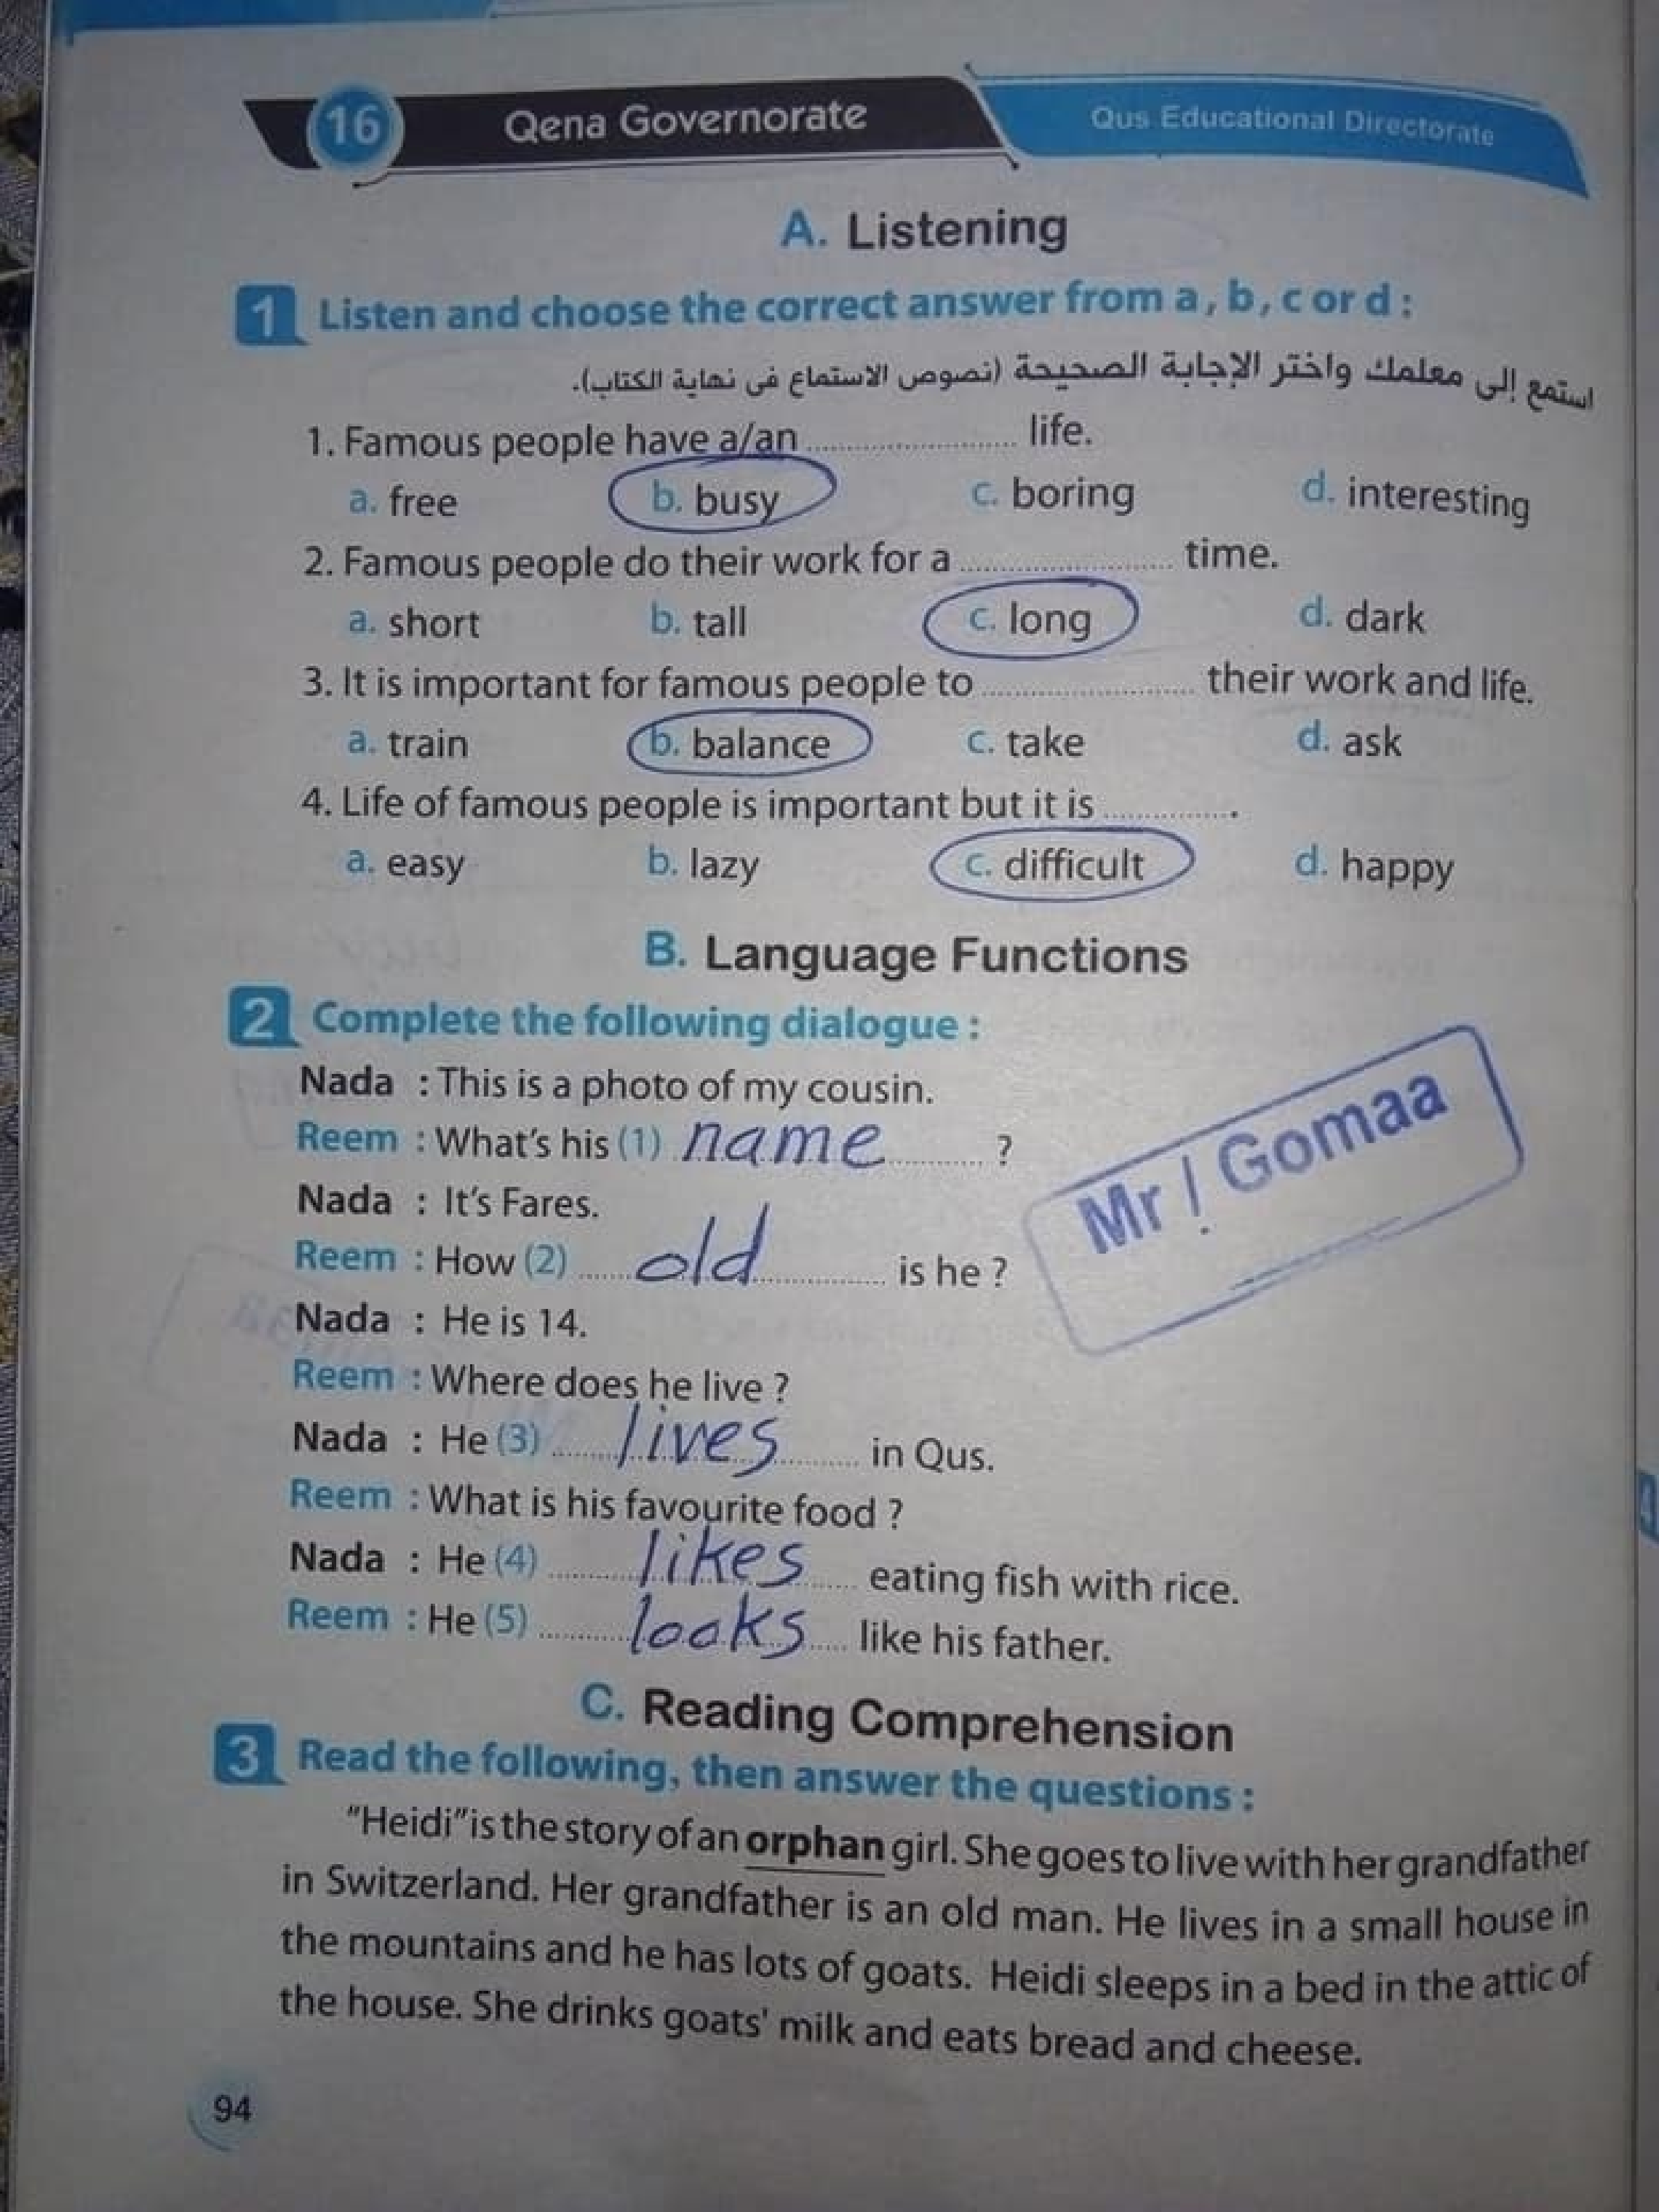 16 Qena Governorate Qus Educational Directorate
A. Listening
1 Listen and choose the correct answer from a, b, c or d :
استمع إلى معلمك واختر الإجابة الصحيحة (نصوص الاستماع فى نهاية الكتاب).
1. Famous people have a/an ........................ life.
a. free b. busy c. boring d. interesting
2. Famous people do their work for a ........................ time.
a. short b. tall c. long d. dark
3. It is important for famous people to ........................ their work and life.
a. train b. balance c. take d. ask
4. Life of famous people is important but it is ...............
a. easy b. lazy c. difficult d. happy
B. Language Functions
2 Complete the following dialogue :
Nada : This is a photo of my cousin.
Reem : What's his (1) name ?
Nada : It's Fares.
Reem : How (2) old is he ?
Nada : He is 14.
Reem : Where does he live ?
Nada : He (3) lives in Qus.
Reem : What is his favourite food ?
Nada : He (4) likes eating fish with rice.
Reem : He (5) looks like his father.
Mr / Gomaa
C. Reading Comprehension
3 Read the following, then answer the questions :
"Heidi" is the story of an orphan girl. She goes to live with her grandfather
in Switzerland. Her grandfather is an old man. He lives in a small house in
the mountains and he has lots of goats. Heidi sleeps in a bed in the attic of
the house. She drinks goats' milk and eats bread and cheese.
94